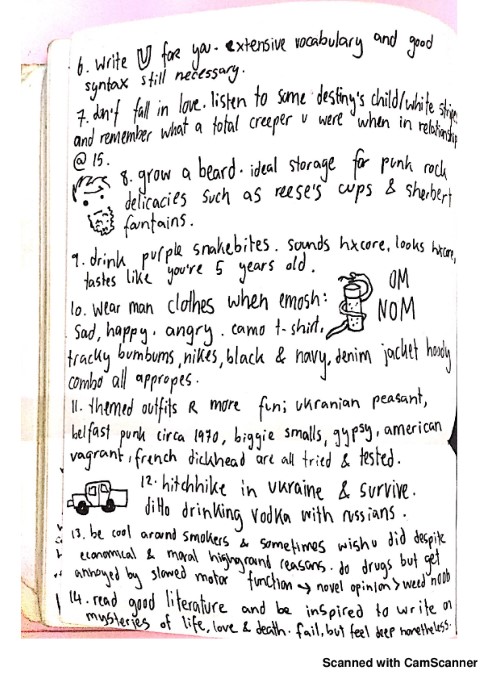 6. write U for you. extensive vocabulary and good
syntax still necessary.
7. don't fall in love. listen to some destiny's child/white stripes
and remember what a total creeper u were when in relationship
@ 15.
8. grow a beard. ideal storage for punk rock
delicacies such as reese's cups & sherbert
fountains.
9. drink purple snakebites. sounds hxcore, looks hxcore,
tastes like you're 5 years old.
OM
NOM
10. wear man clothes when emosh:
sad, happy, angry. camo t-shirt,
tracky bumbums, nikes, black & navy, denim jacket hoody
combo all appropes.
11. themed outfits R more fun; ukranian peasant,
belfast punk circa 1970, biggie smalls, gypsy, american
vagrant, french dickhead are all tried & tested.
12. hitchhike in ukraine & survive.
ditto drinking vodka with russians.
13. be cool around smokers & sometimes wish u did despite
economical & moral highground reasons. do drugs but get
annoyed by slowed motor function → novel opinion > weed noob
14. read good literature and be inspired to write on
mysteries of life, love & death. fail, but feel deep nonetheless.
Scanned with CamScanner